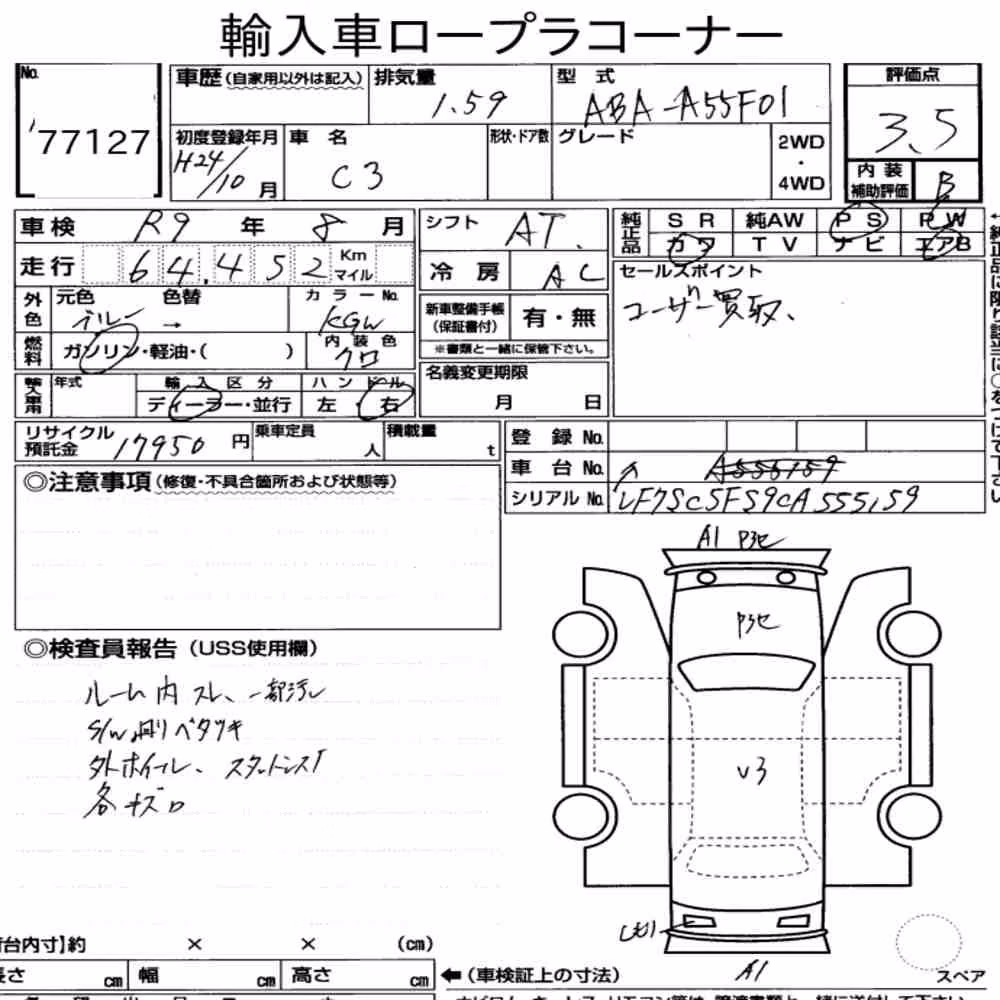 輸入車ロープラコーナー
No.
77127
車歴(自家用以外は記入)
排気量
1.59
型 式
ABA-A55F01
評価点
3.5
初度登録年月
H24/10 月
車 名
C3
形状・ドア数
グレード
2WD
・
4WD
内 装
補助評価
B
車検 R9 年 8 月
走行 64,452 Km マイル
シフト AT.
冷 房 AC
純正品
SR 純AW PS PW
カワ TV ナビ エアB
外色
元色
ブルー
色替
→
カラーNo.
KGW
燃料
ガソリン・軽油・( )
内装色
クロ
新車整備手帳
(保証書付)
有・無
※書類と一緒に保管下さい。
セールスポイント
ユーザー買取、
輸入車用
年式
輸入区分
ディーラー・並行
ハンドル
左・右
名義変更期限
月 日
リサイクル
預託金
17950 円
乗車定員
人
積載量
t
登 録 No.
車 台 No. ↑
シリアル No. VF7SC5FS9CA555159
◎注意事項(修復・不具合箇所および状態等)
◎検査員報告(USS使用欄)
ルーム内スレ、一部汚レ
S/W周りベタツキ
外ホイール、
各キズ
A1
U3
A1
台内寸】約 × × (cm)
長さ cm 幅 cm 高さ cm
←(車検証上の寸法)
スペア